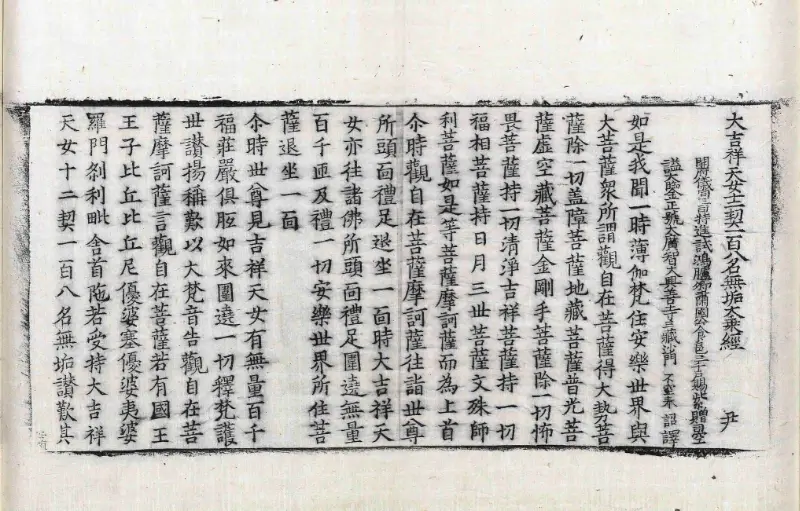 大吉祥天女十二契一百八名無垢大乘經
尹
開府儀同三司特進試鴻臚卿肅國公食邑三千戶賜紫贈司空
謚大鑒正號大廣智大興善寺三藏沙門 不空奉 詔譯
如是我聞一時薄伽梵住安樂世界與
大菩薩衆所謂觀自在菩薩得大勢菩
薩除一切盖障菩薩地藏菩薩普光菩
薩虛空藏菩薩金剛手菩薩除一切怖
畏菩薩持一切清淨吉祥菩薩持一切
福相菩薩持日月三世菩薩文殊師
利菩薩如是等菩薩摩訶薩而為上首
尒時觀自在菩薩摩訶薩往詣世尊
所頭面禮足退坐一面時大吉祥天
女亦往諸佛所頭面禮足圍遶無量
百千匝及禮一切安樂世界所住菩
薩退坐一面
尒時世尊見吉祥天女有無量百千
福莊嚴俱胝如來圍遶一切釋梵護
世讃揚稱歎以大梵音告觀自在菩
薩摩訶薩言觀自在菩薩若有國王
王子比丘比丘尼優婆塞優婆夷婆
羅門剎利毗舍首陁若受持大吉祥
天女十二契一百八名無垢讃歎其